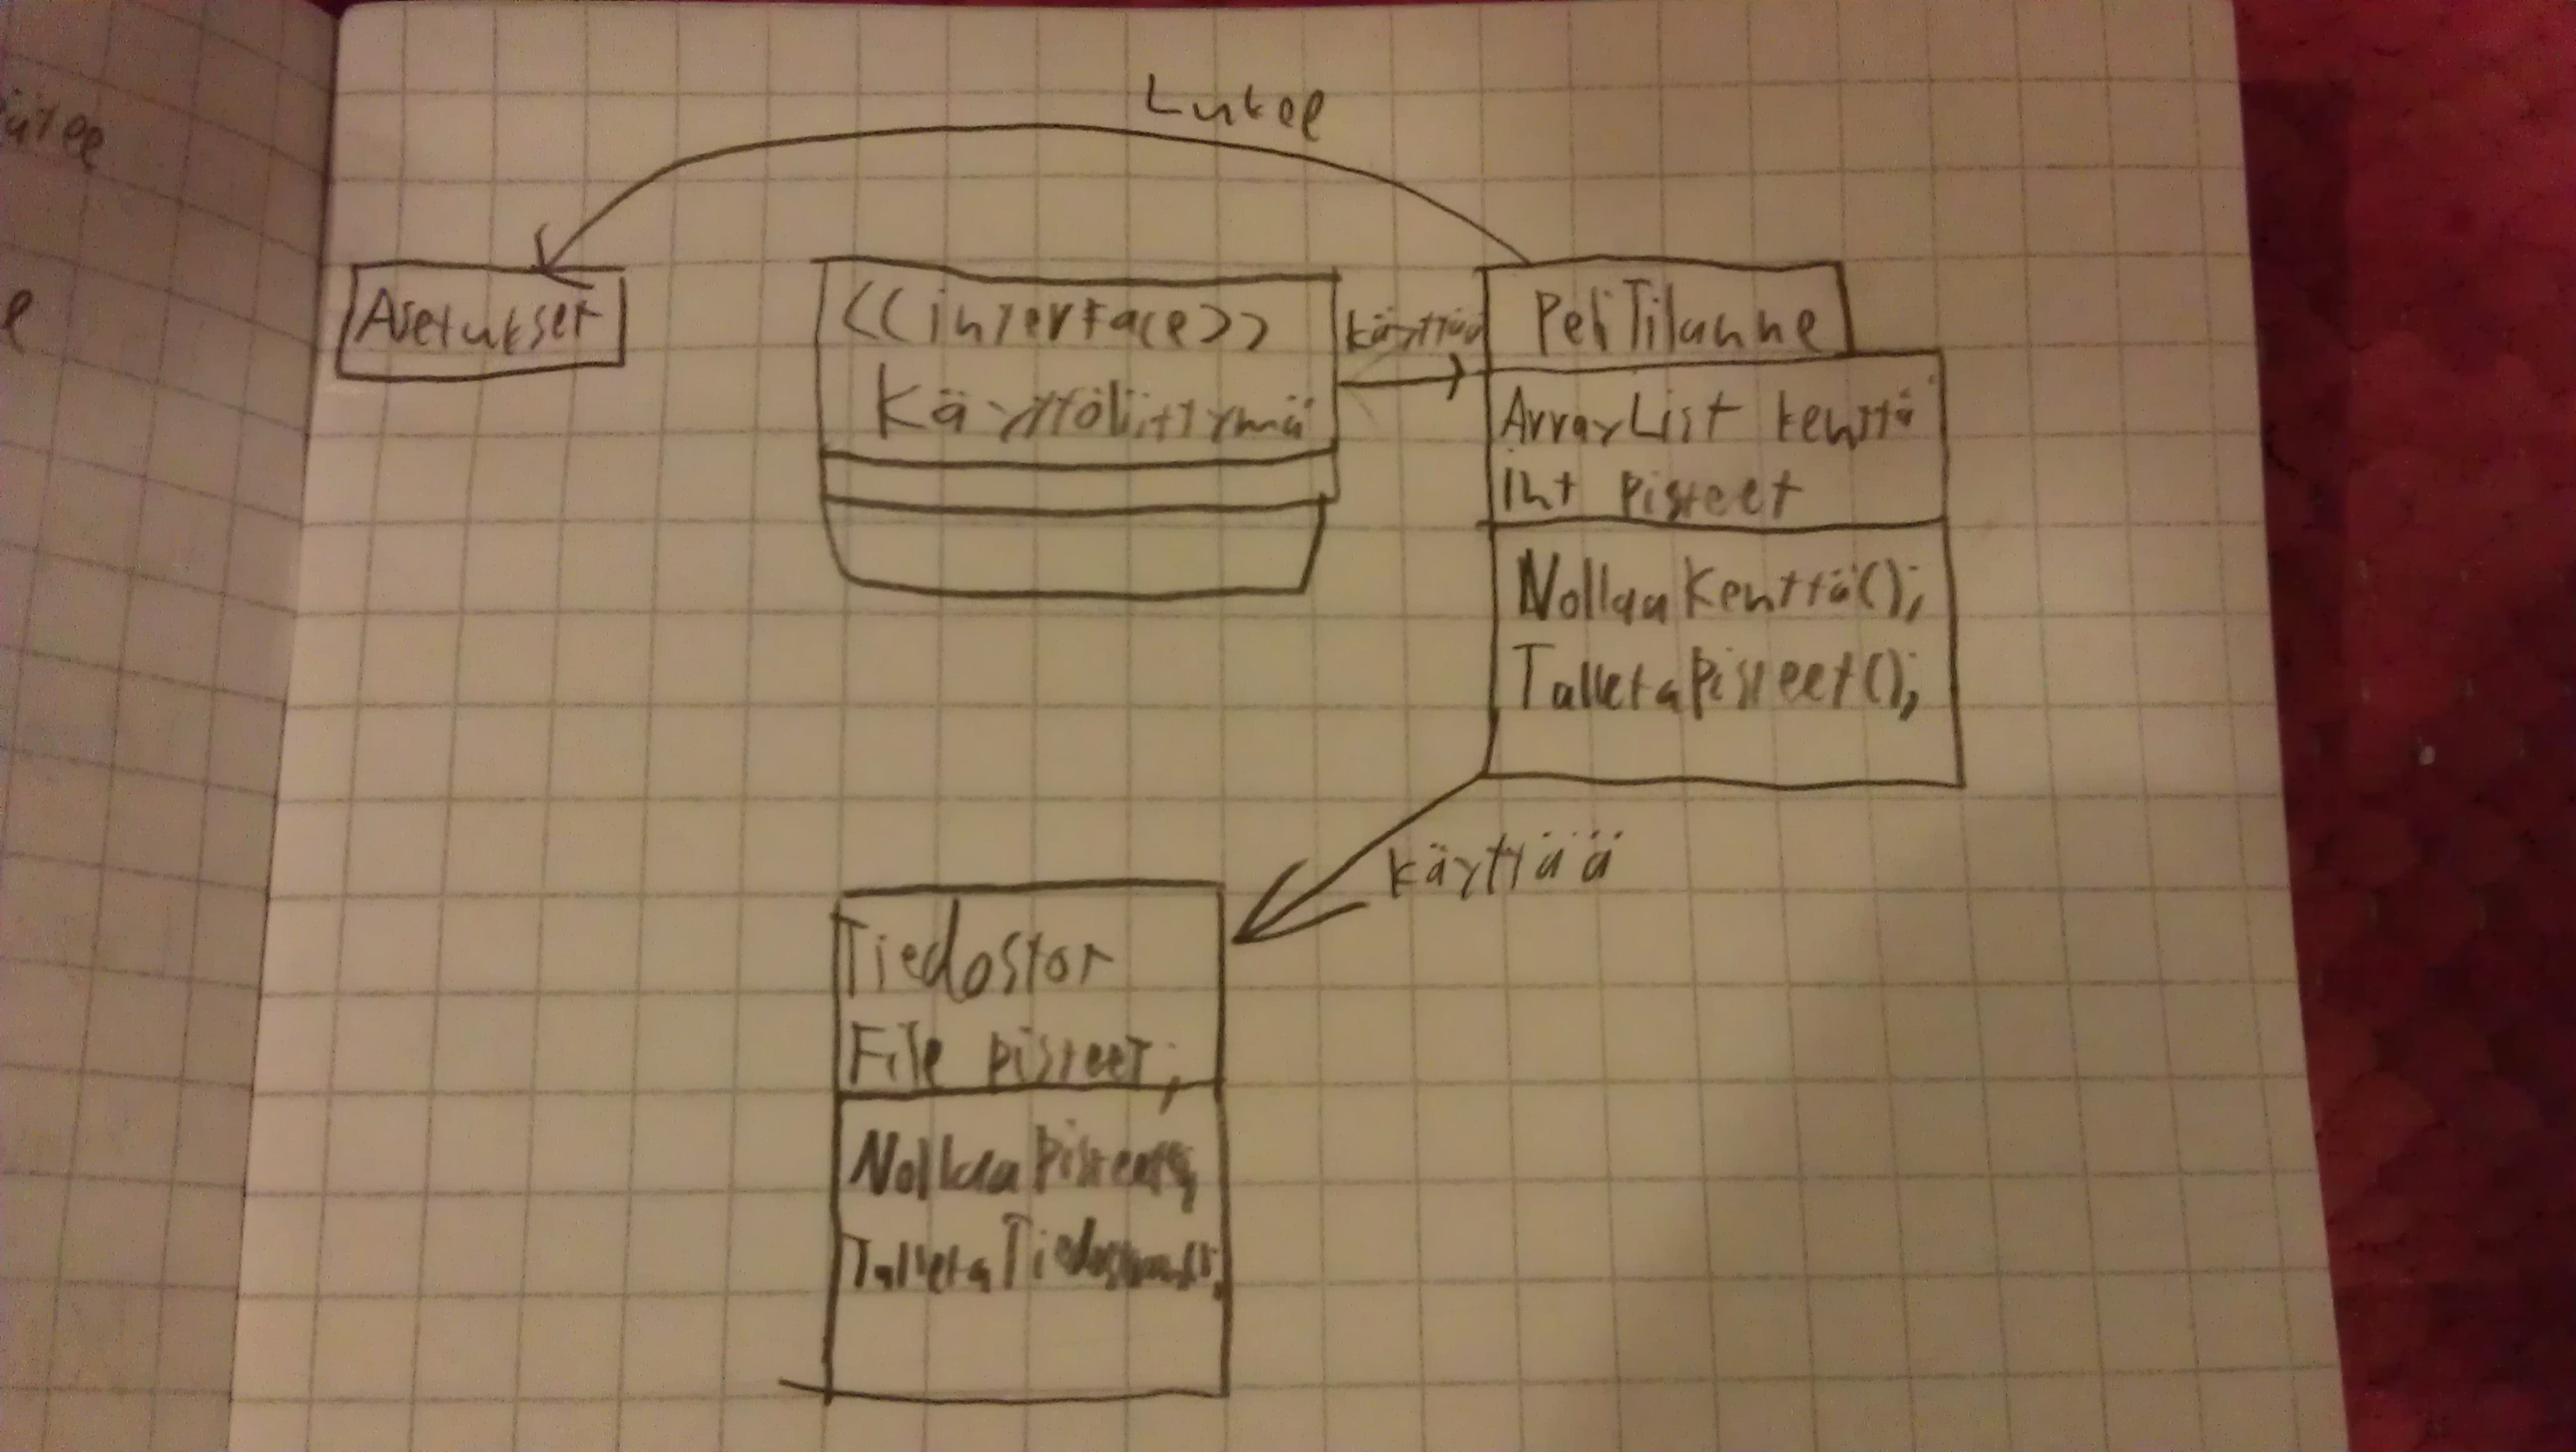 Lukee
Asetukset
<<interface>>
Käyttöliittymä
käyttää
PeliTilanne
ArrayList kenttä
int pisteet
NollaaKenttä();
TalletaPisteet();
käyttää
Tiedostot
File pisteet;
NollaaPisteet();
TalletaTiedostoon();